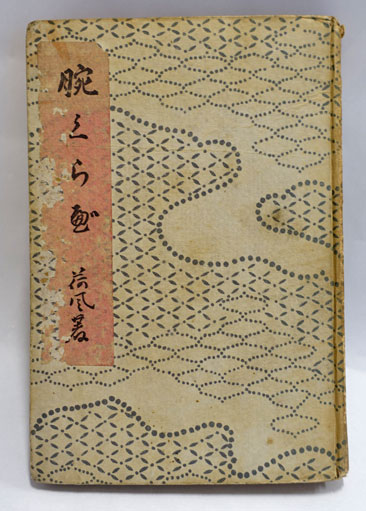 腕くらべ 荷風著